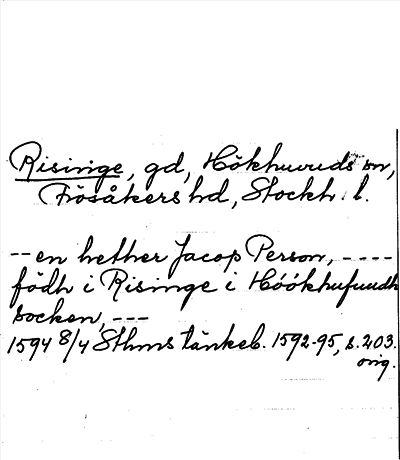 Risinge, gd, Hökhuvuds sn,
Frösåkers hd, Stockh. l.
-- en hether Jacop Person, ----
födh i Risinge i Höökhufuudh
socken, ---
1594 8/4, Sthms tänkeb. 1592-95, s. 203.
orig.